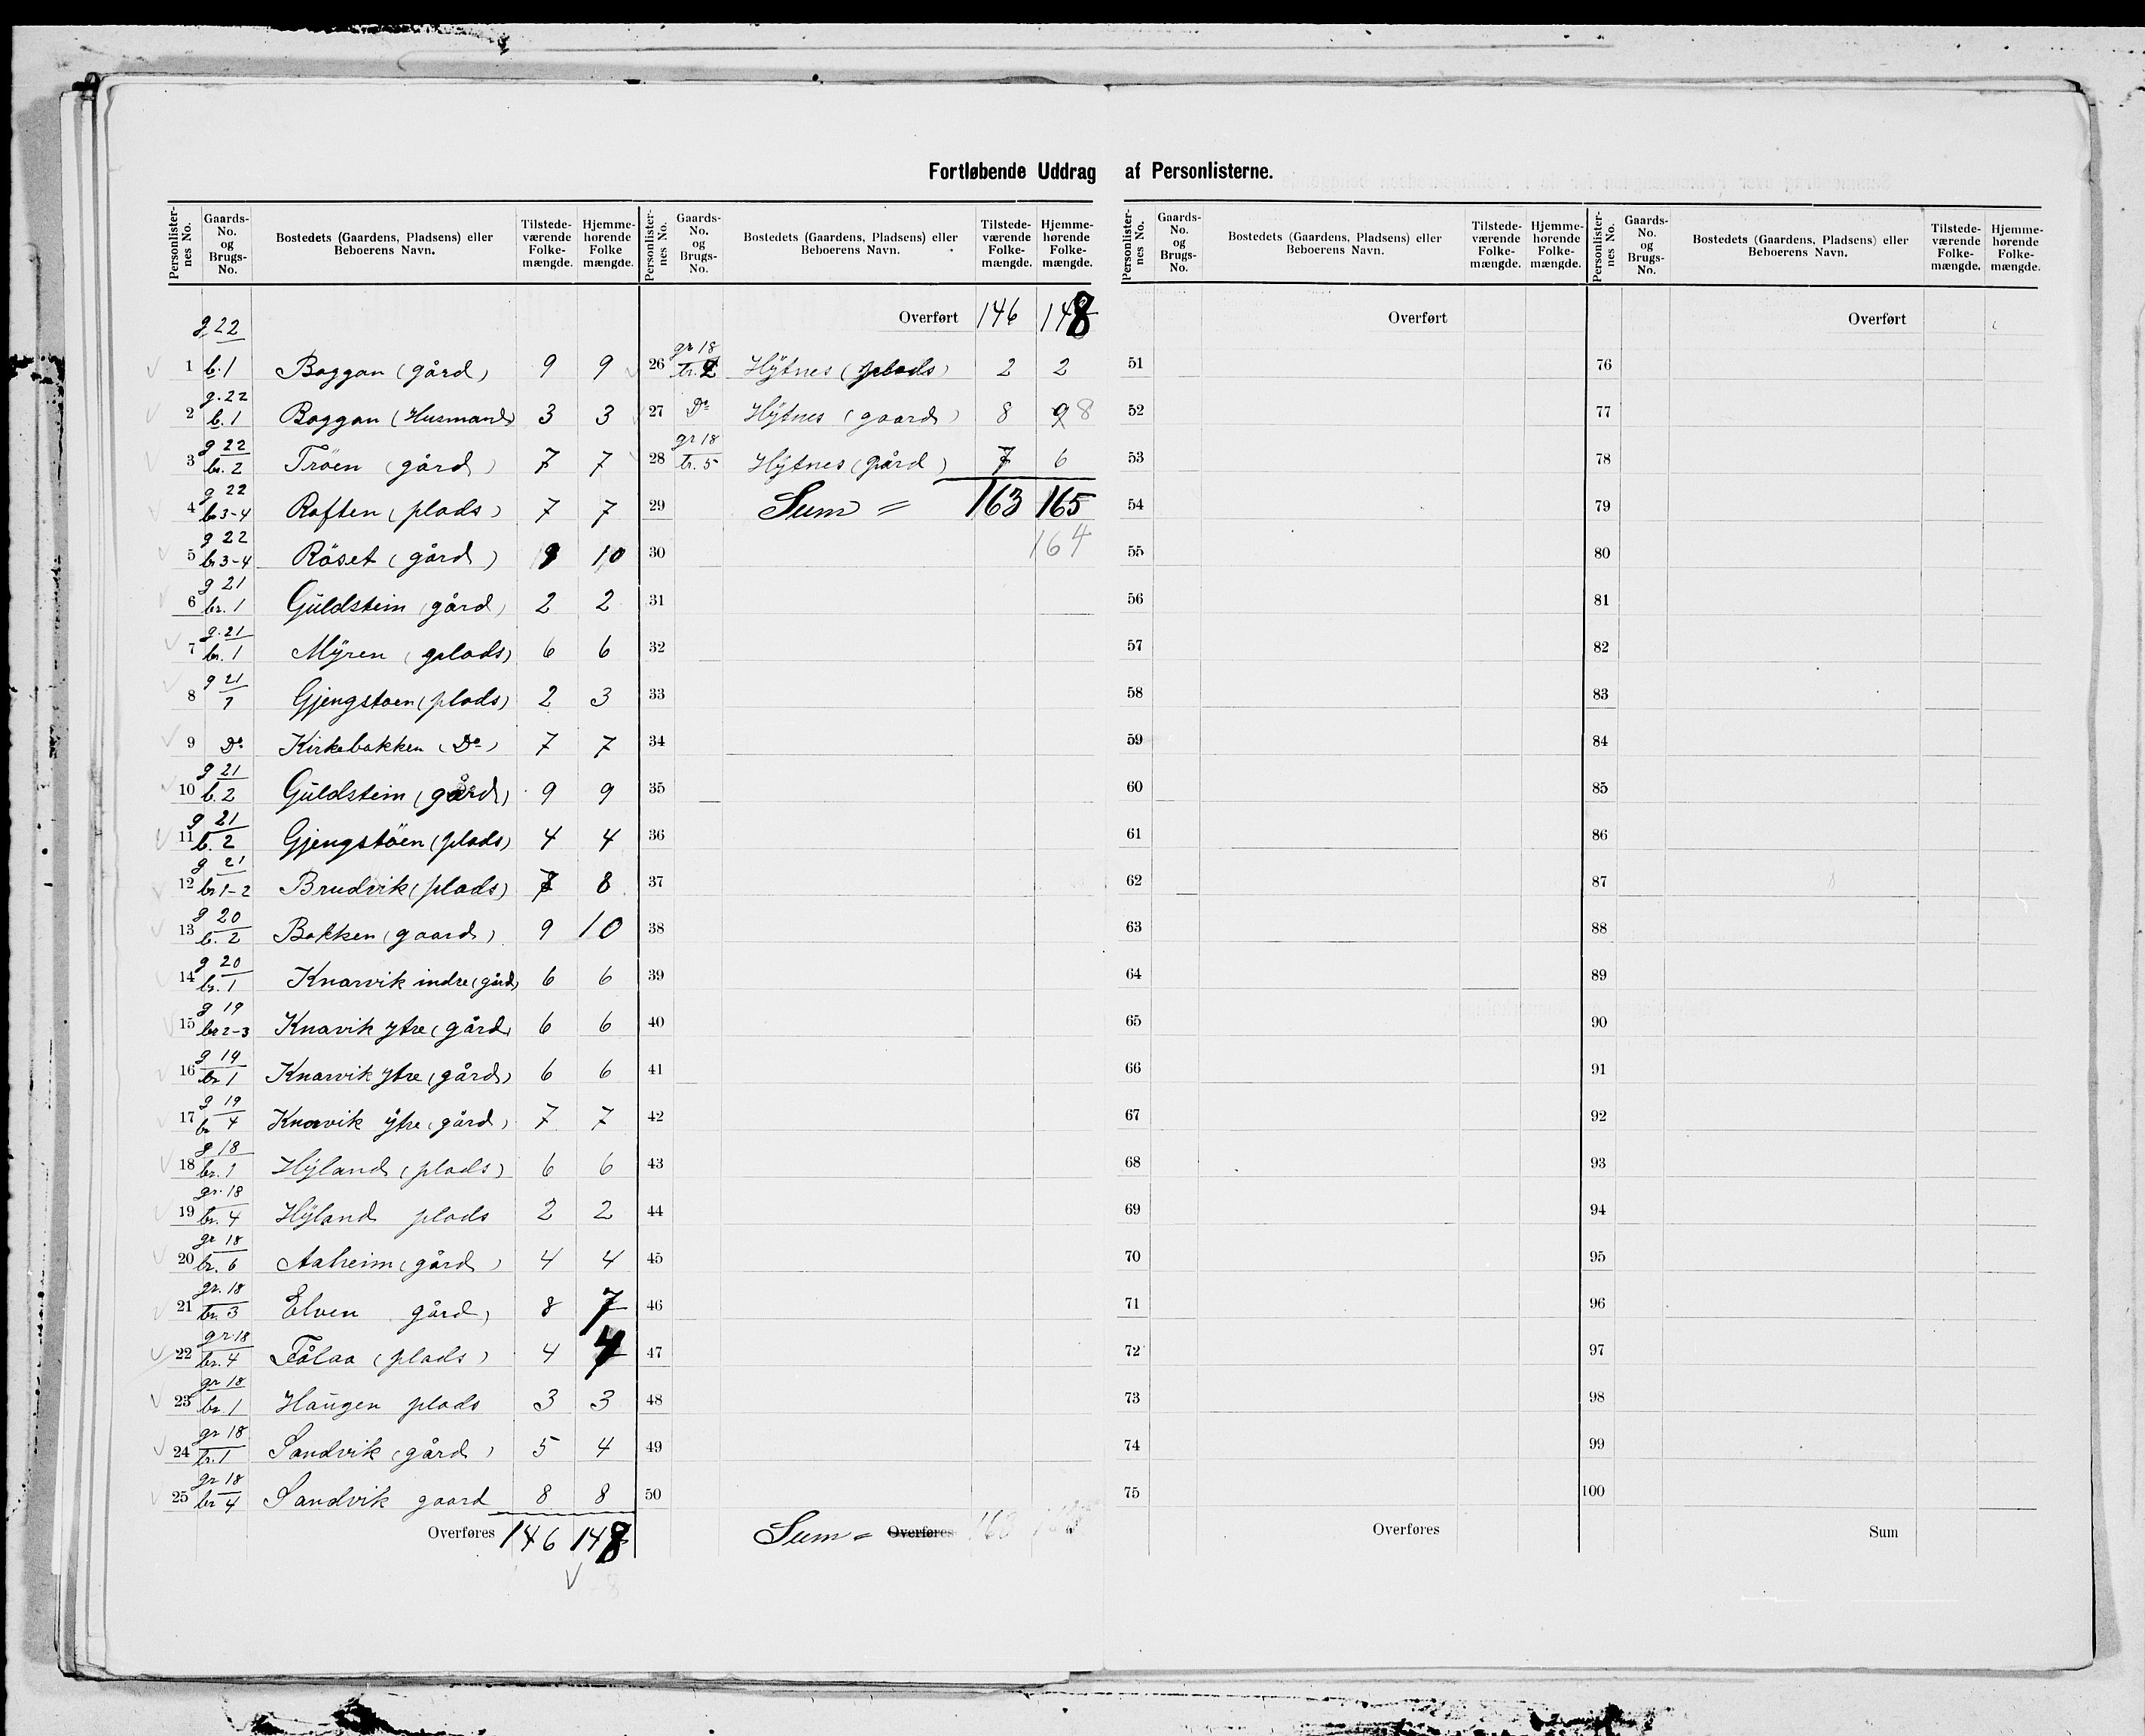 Fortløbende Uddrag af Personlisterne.
Personlister-nes No. Gaards-No. og Brugs-No. Bostedets (Gaardens, Pladsens) eller Beboerens Navn. Tilstede-værende Folke-mængde. Hjemme-hørende Folke mængde.
g 22
1 b. 1 Boggan (gård) 9 9
g. 22
2 b. 1 Boggan (Husmand) 3 3
g 22
3 br. 2 Tröen (gård) 7 7
g 22
4 br 3-4 Roften (plads) 7 7
g 22
5 br 3-4 Röset (gård) 9 10
g 21
6 br. 1 Guldstein (gård) 2 2
g. 21
7 br. 1 Myren (plads) 6 6
g 21
8 1 Gjengstoen (plads) 2 3
9 Do Kirkebakken (Do) 7 7
g 21
10 b. 2 Guldstein (gård) 9 9
g 21
11 b. 2 Gjengstöen (plads) 4 4
g 21
12 br 1-2 Brudvik (plads) 7 8
g 20
13 b. 2 Bakken (gaard) 9 10
g 20
14 br. 1 Knarvik indre (gård) 6 6
g 19
15 br 2-3 Knavik ytre (gård) 6 6
g 19
16 br 1 Knarvik ytre (gård) 6 6
g 19
17 br 4 Knarvik ytre (gård) 7 7
g 18
18 br. 1 Hyland (plads) 6 6
gr. 18
19 br. 4 Hyland plads 2 2
gr 18
20 br. 6 Aaheim (gård) 4 4
gr. 18
21 br. 3 Elven gård) 8 7
gr. 18
22 br. 4 Fålaa (plads) 4 4
gr 18
23 br 1 Haugen plads 3 3
gr 18
24 br. 1 Sandvik (gård) 5 4
gr 18
25 br 4 Sandvik gaard 8 8
Overføres 146 148
Personlister-nes No. Gaards-No. og Brugs-No. Bostedets (Gaardens, Pladsens) eller Beboerens Navn. Tilstede-værende Folke-mængde. Hjemme-hørende Folke-mængde.
Overført 146 148
gr 18
26 br. 2 Hytnes (plads) 2 2
27 Do Hytnes (gaard) 8 9 8
gr 18
28 br. 5 Hytnes (gård) 7 6
29 Sum = 163 165
30 164
31
32
33
34
35
36
37
38
39
40
41
42
43
44
45
46
47
48
49
50
Sum = Overføres 163
Personlister-nes No. Gaards-No. og Brugs-No. Bostedets (Gaardens, Pladsens) eller Beboerens Navn. Tilstede-værende Folke-mængde. Hjemme-hørende Folke-mængde.
Overført
51
52
53
54
55
56
57
58
59
60
61
62
63
64
65
66
67
68
69
70
71
72
73
74
75
Overføres
Personlister-nes No. Gaards-No. og Brugs-No. Bostedets (Gaardens, Pladsens) eller Beboerens Navn. Tilstede-værende Folke-mængde. Hjemme-hørende Folke-mængde.
Overført
76
77
78
79
80
81
82
83
84
85
86
87
88
89
90
91
92
93
94
95
96
97
98
99
100
Sum